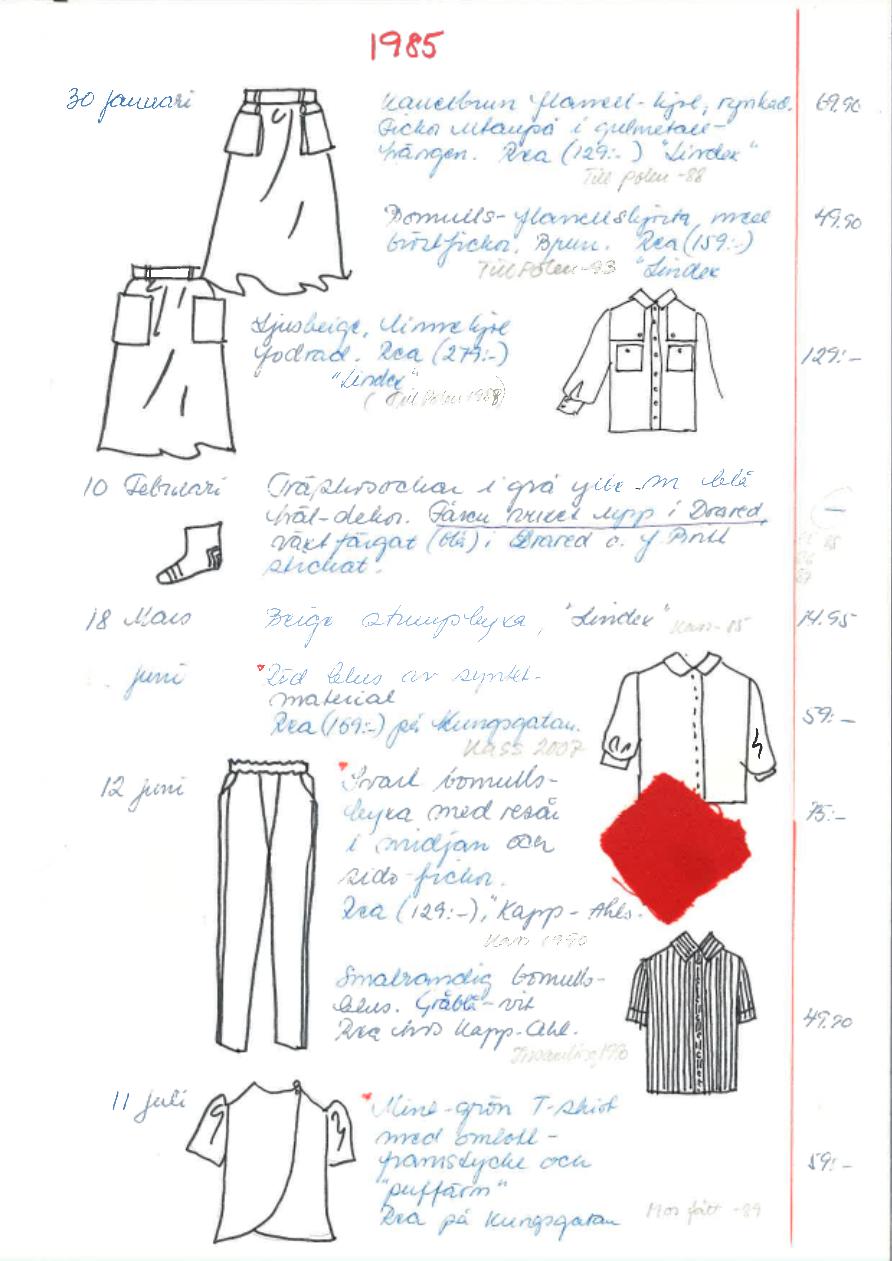 1985
30 Januari
Kanelbrun flanell-kjol, rynkad. 69.90
Fickor i gulmetall-
hängen. Rea (129:-) "Lindex"
Till Polen -88
Bomulls-flanellskjorta, med 49.90
bröstfickor. Brun. Rea (159:-)
Till Polen-93 "Lindex
Ljusbeige, linnekjol
fodrad. Rea (279:-) 129:-
"Lindex"
(Till Polen 1988)
10 Februari Träskosockar i grå ylle m blå
häl-dekor. Garn i Drared, -
växtfärgat (blå) i Drared o. f
stickat.
18 Mars Beige strumpbyxa, "Lindex" Kass-85 14.95
juni Röd blus av syntet-
material
Rea (169:-) på Kungsgatan. 59:-
Kass 2007
12 juni Svart bomulls- 75:-
byxa med resår
i midjan och
sido-fickor.
Rea (129:-), "Kapp-Ahls.
Kass 1990
Smalrandig bomulls-
blus. Gråblå-vit
Rea hos Kapp-Ahl. 49.90
Insamling 1990
11 Juli Mint-grön T-shirt
med omlott-
framstycke och 59:-
"puffärm"
Rea på Kungsgatan Mor fått -89